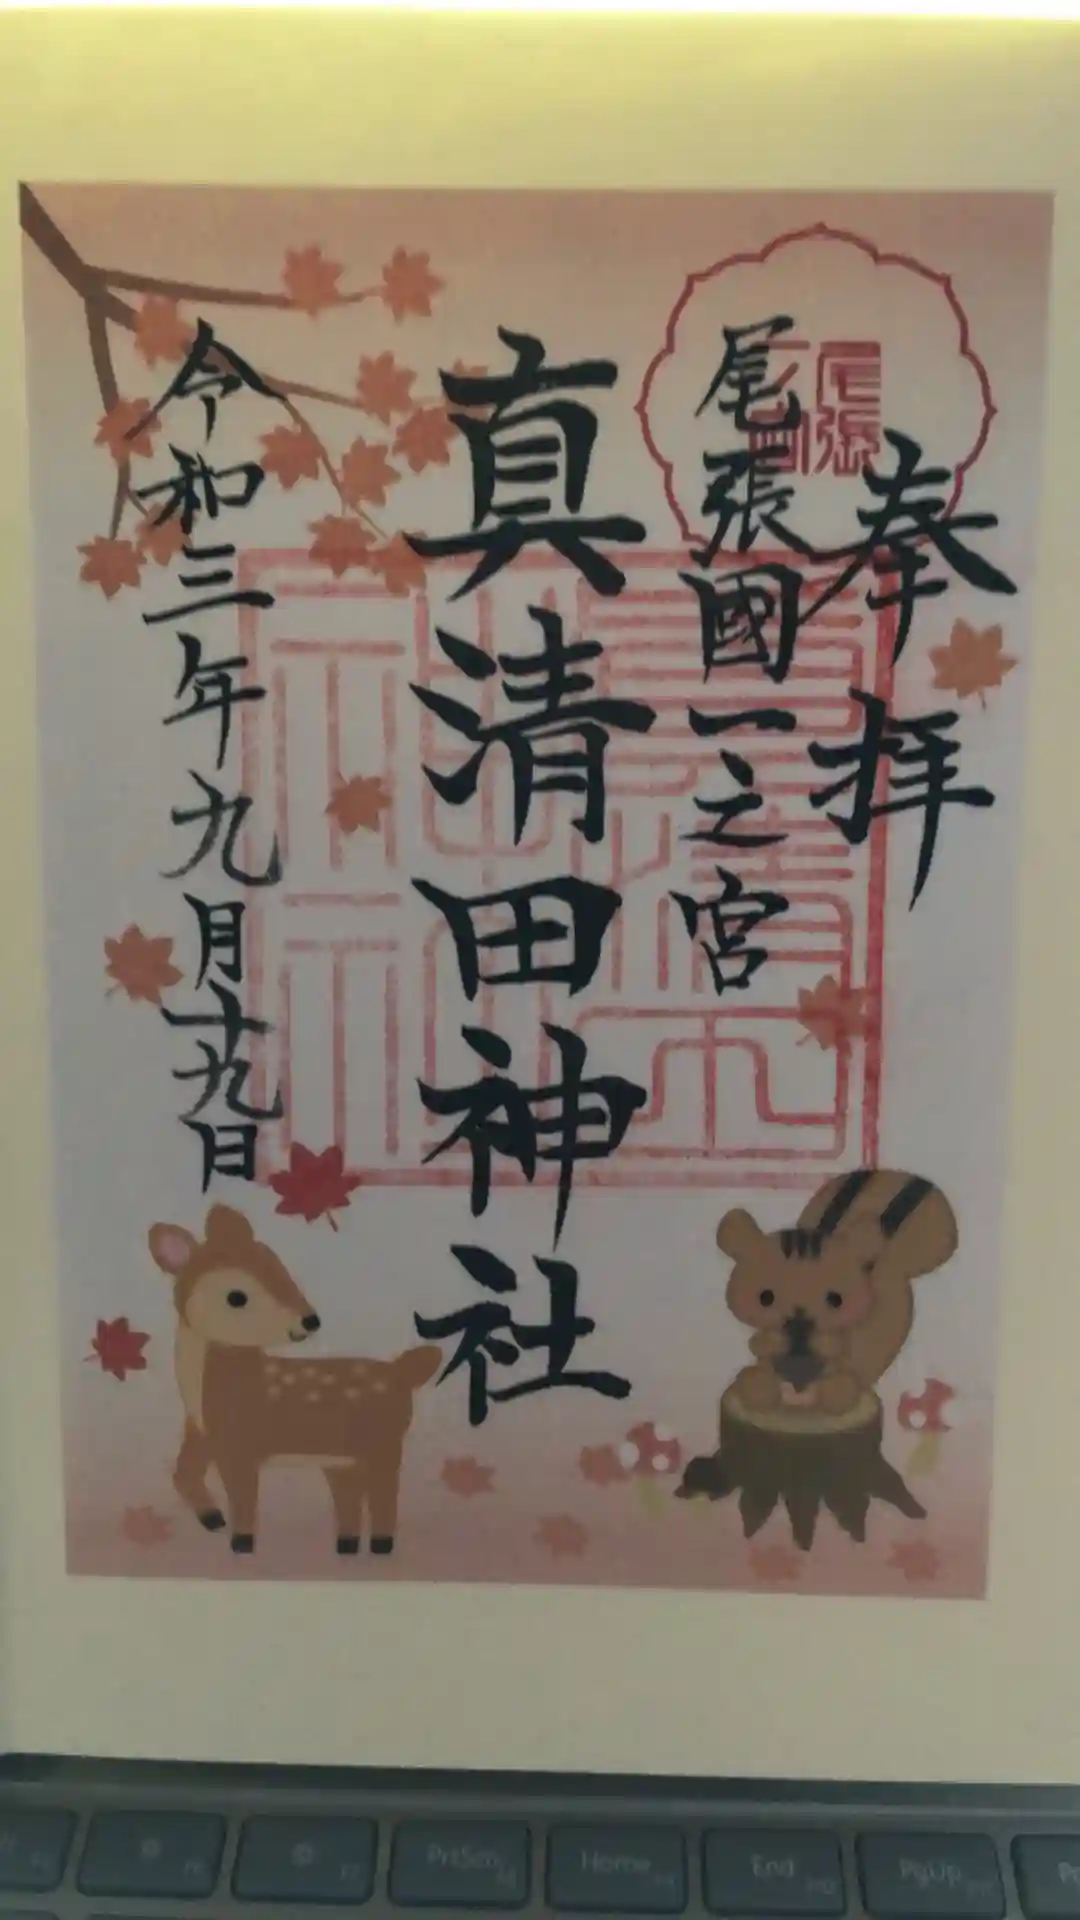 奉拝
尾張國一之宮
真清田神社
令和三年九月十九日
尾張
PrtSc
Home
End
PgUp